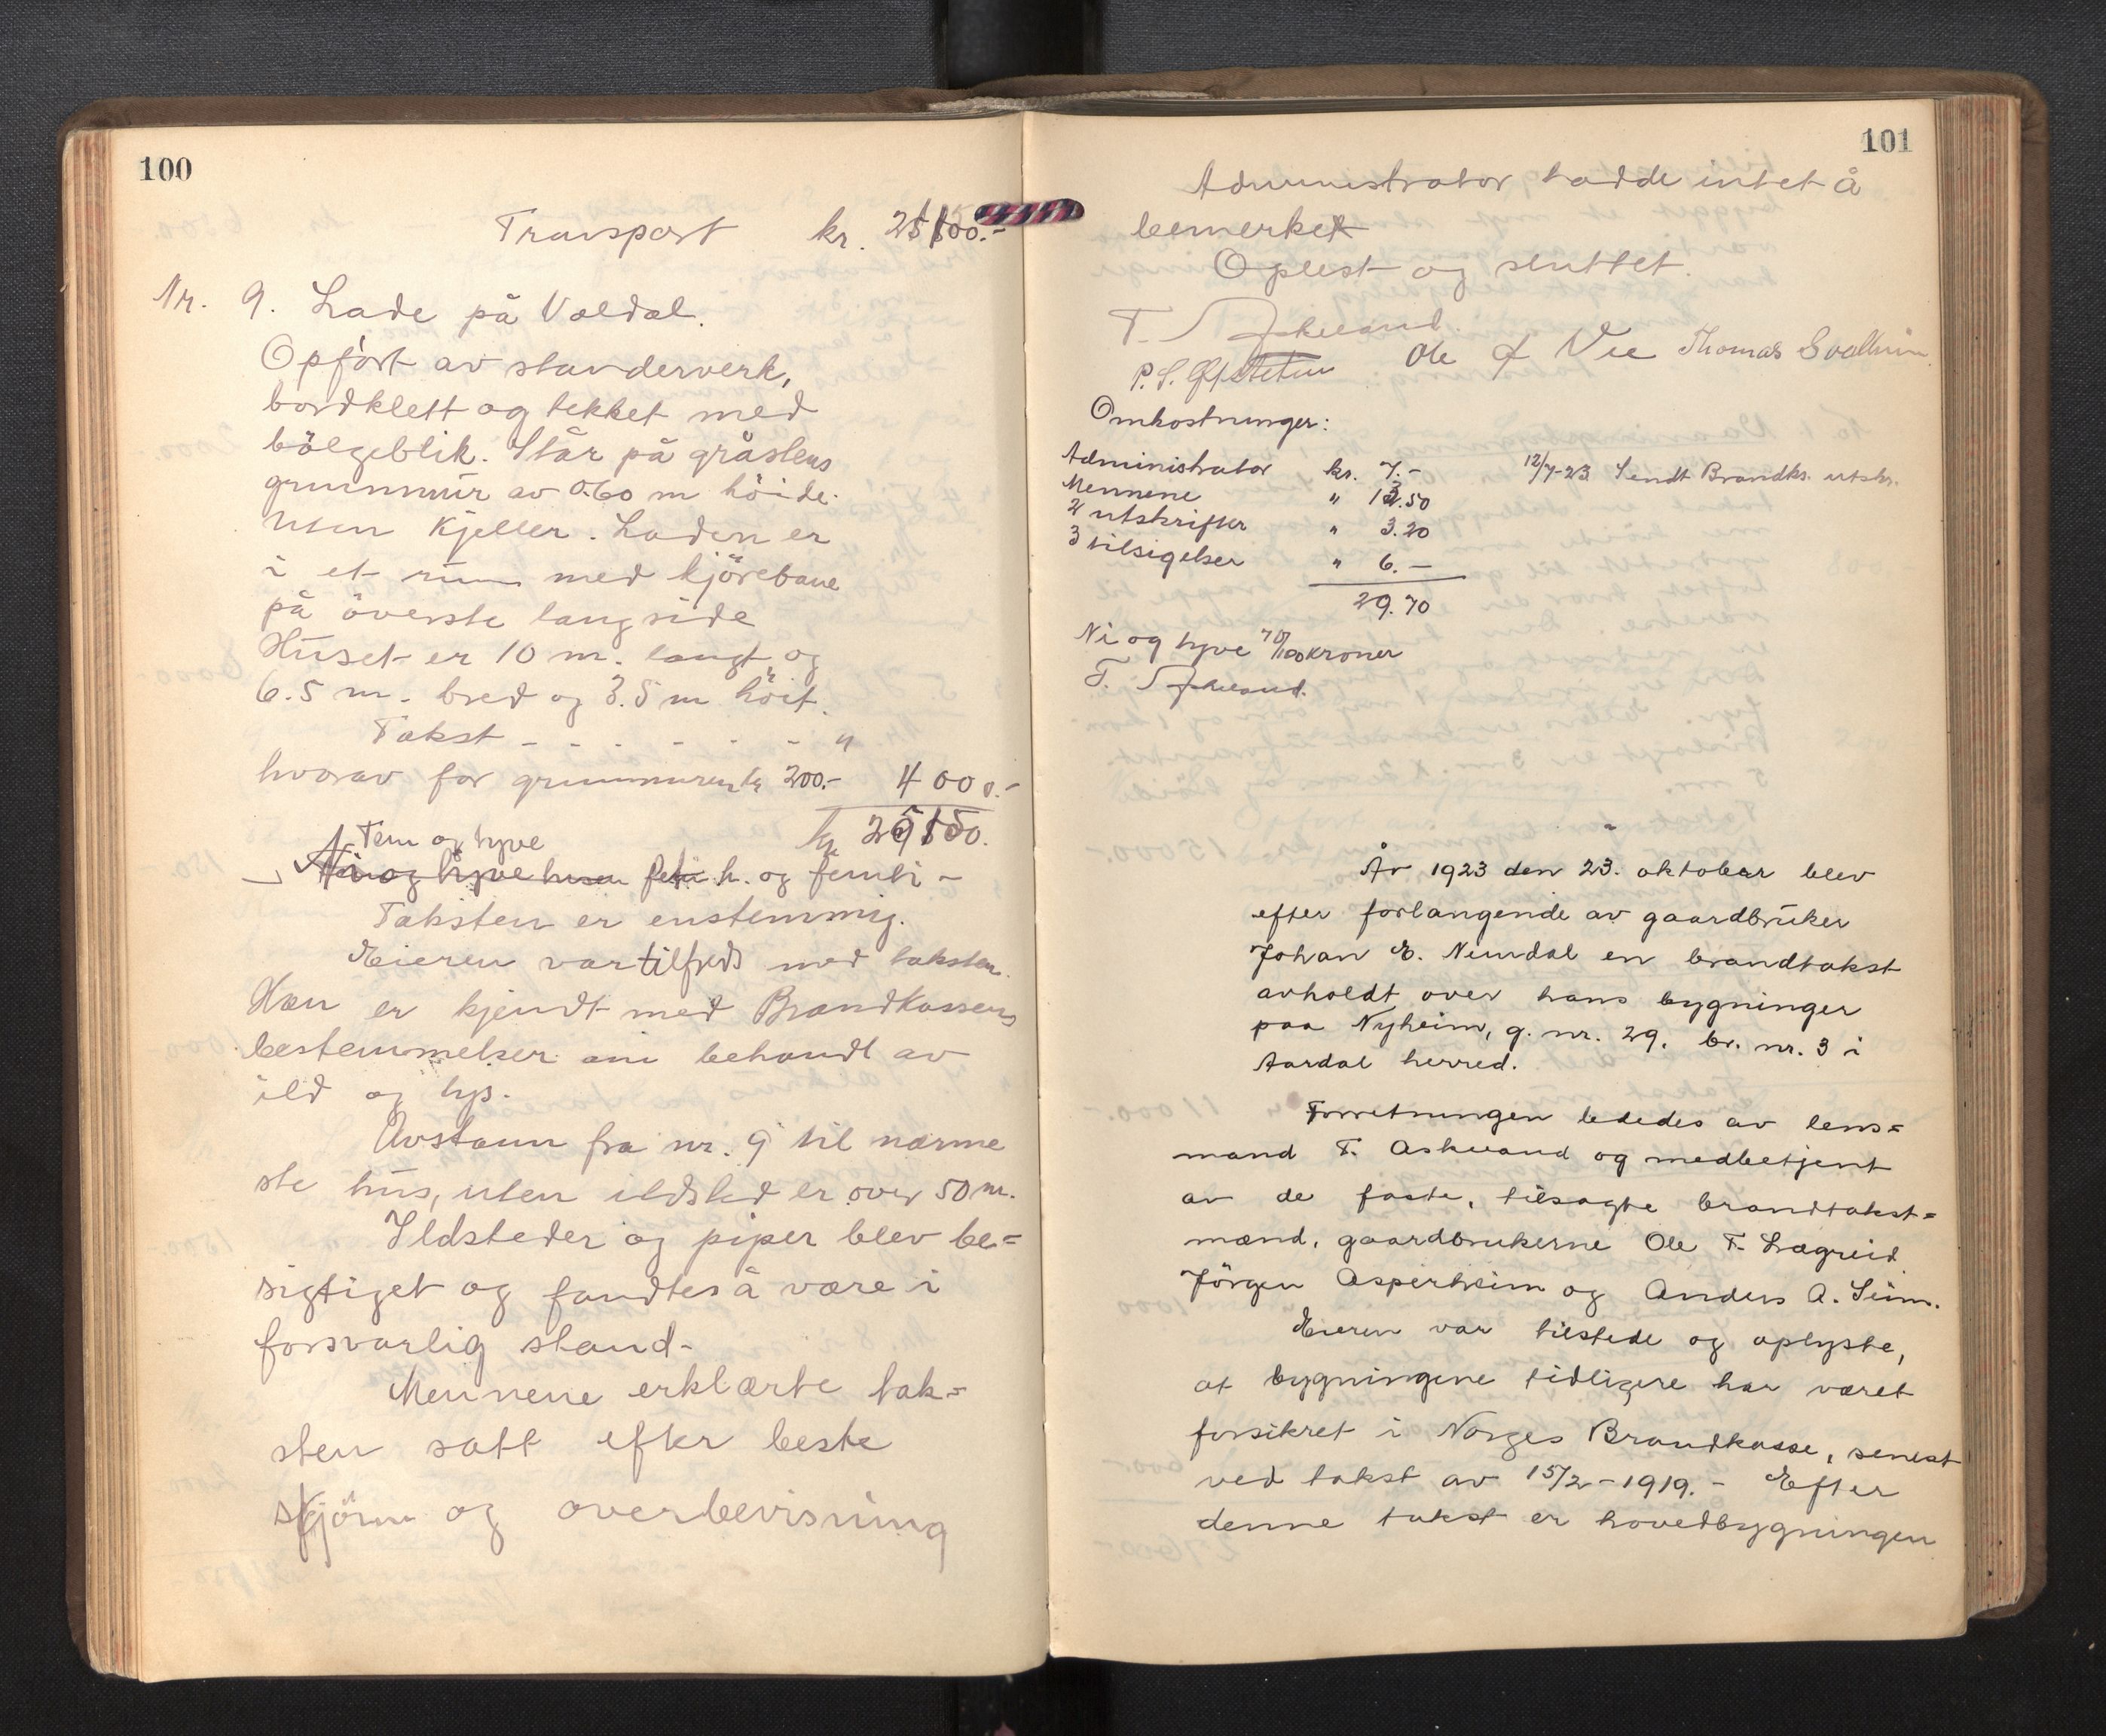 100
Transport kr.
Nr. 9. Lade på Valdal.
Opført av standerverk,
bordklett og tekket med
bölgeblik. Står på gråstens
grunnmur av 0.60 m höide.
Uten Kjeller. Laden er
i et rum med kjörebane
på överste langside
Huset er 10 m. langt og
6.5 m. bred og 3.5 m höit.
Takst - - - - - - - "
hvorav for grunnmuren kr 200.- 4000.-
kr
Fem og tyve
Ni og tyve tusen h. og femti -
Taksten er enstemmig.
Eieren var tilfreds med taksten.
Han er kjendt med Brandkassens
bestemmelser om behandl av
ild og lys.
Avstann fra nr. 9 til nærme
ste hus, uten ildsted er over 50 m.
Ildsteder og piper blev be=
sigtiget og fandtes å være i
forsvarlig stand-
Mennene erklærte tak=
sten satt efter beste
skjönn og overbevisning
101
Administrator hadde intet å
bemerket
Oplest og sluttet.
T.
P. S. Ole Vee Thomas
Omkostninger:
Administrator kr. 7.- 12/7-23 Sendt Brandks. utskr.
Mennene " 13.50
4 utskrifter " 3.20
3 tilsigelser " 6.-
29.70
Ni og tyve 70/100 kroner
T.
År 1923 den 23. oktober blev
efter forlangende av gaardbruker
Johan E. Nundal en brandtakst
avholdt over hans bygninger
paa Nyheim, g. nr. 29. br. nr. 3 i
Aardal herred.
Forretningen lededes av lens=
mand T. Askeland og medbetjent
av de faste, tilsagte brandtakst=
mænd, gaardbrukerne Ole T. Lægreid
Jörgen Asperheim og Anders A. Seim.
Eieren var tilstede og oplyste,
at bygningene tidligere har været
forsikret i Norges Brandkasse, senest
ved takst av 15/2-1919.- Efter
denne takst er hovedbygningen